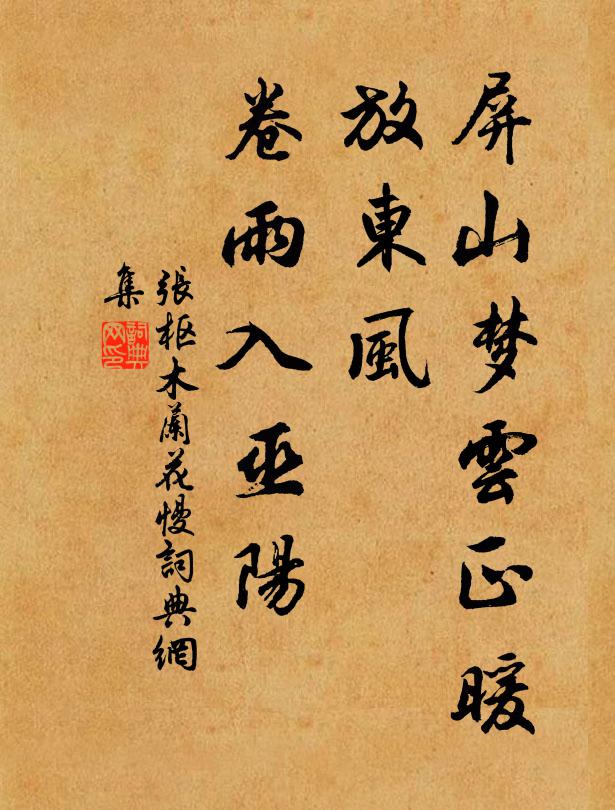 屏山梦雲正暖
放東風
卷雨入巫陽
張枢木蘭花慢詞典網
集
詞典網印